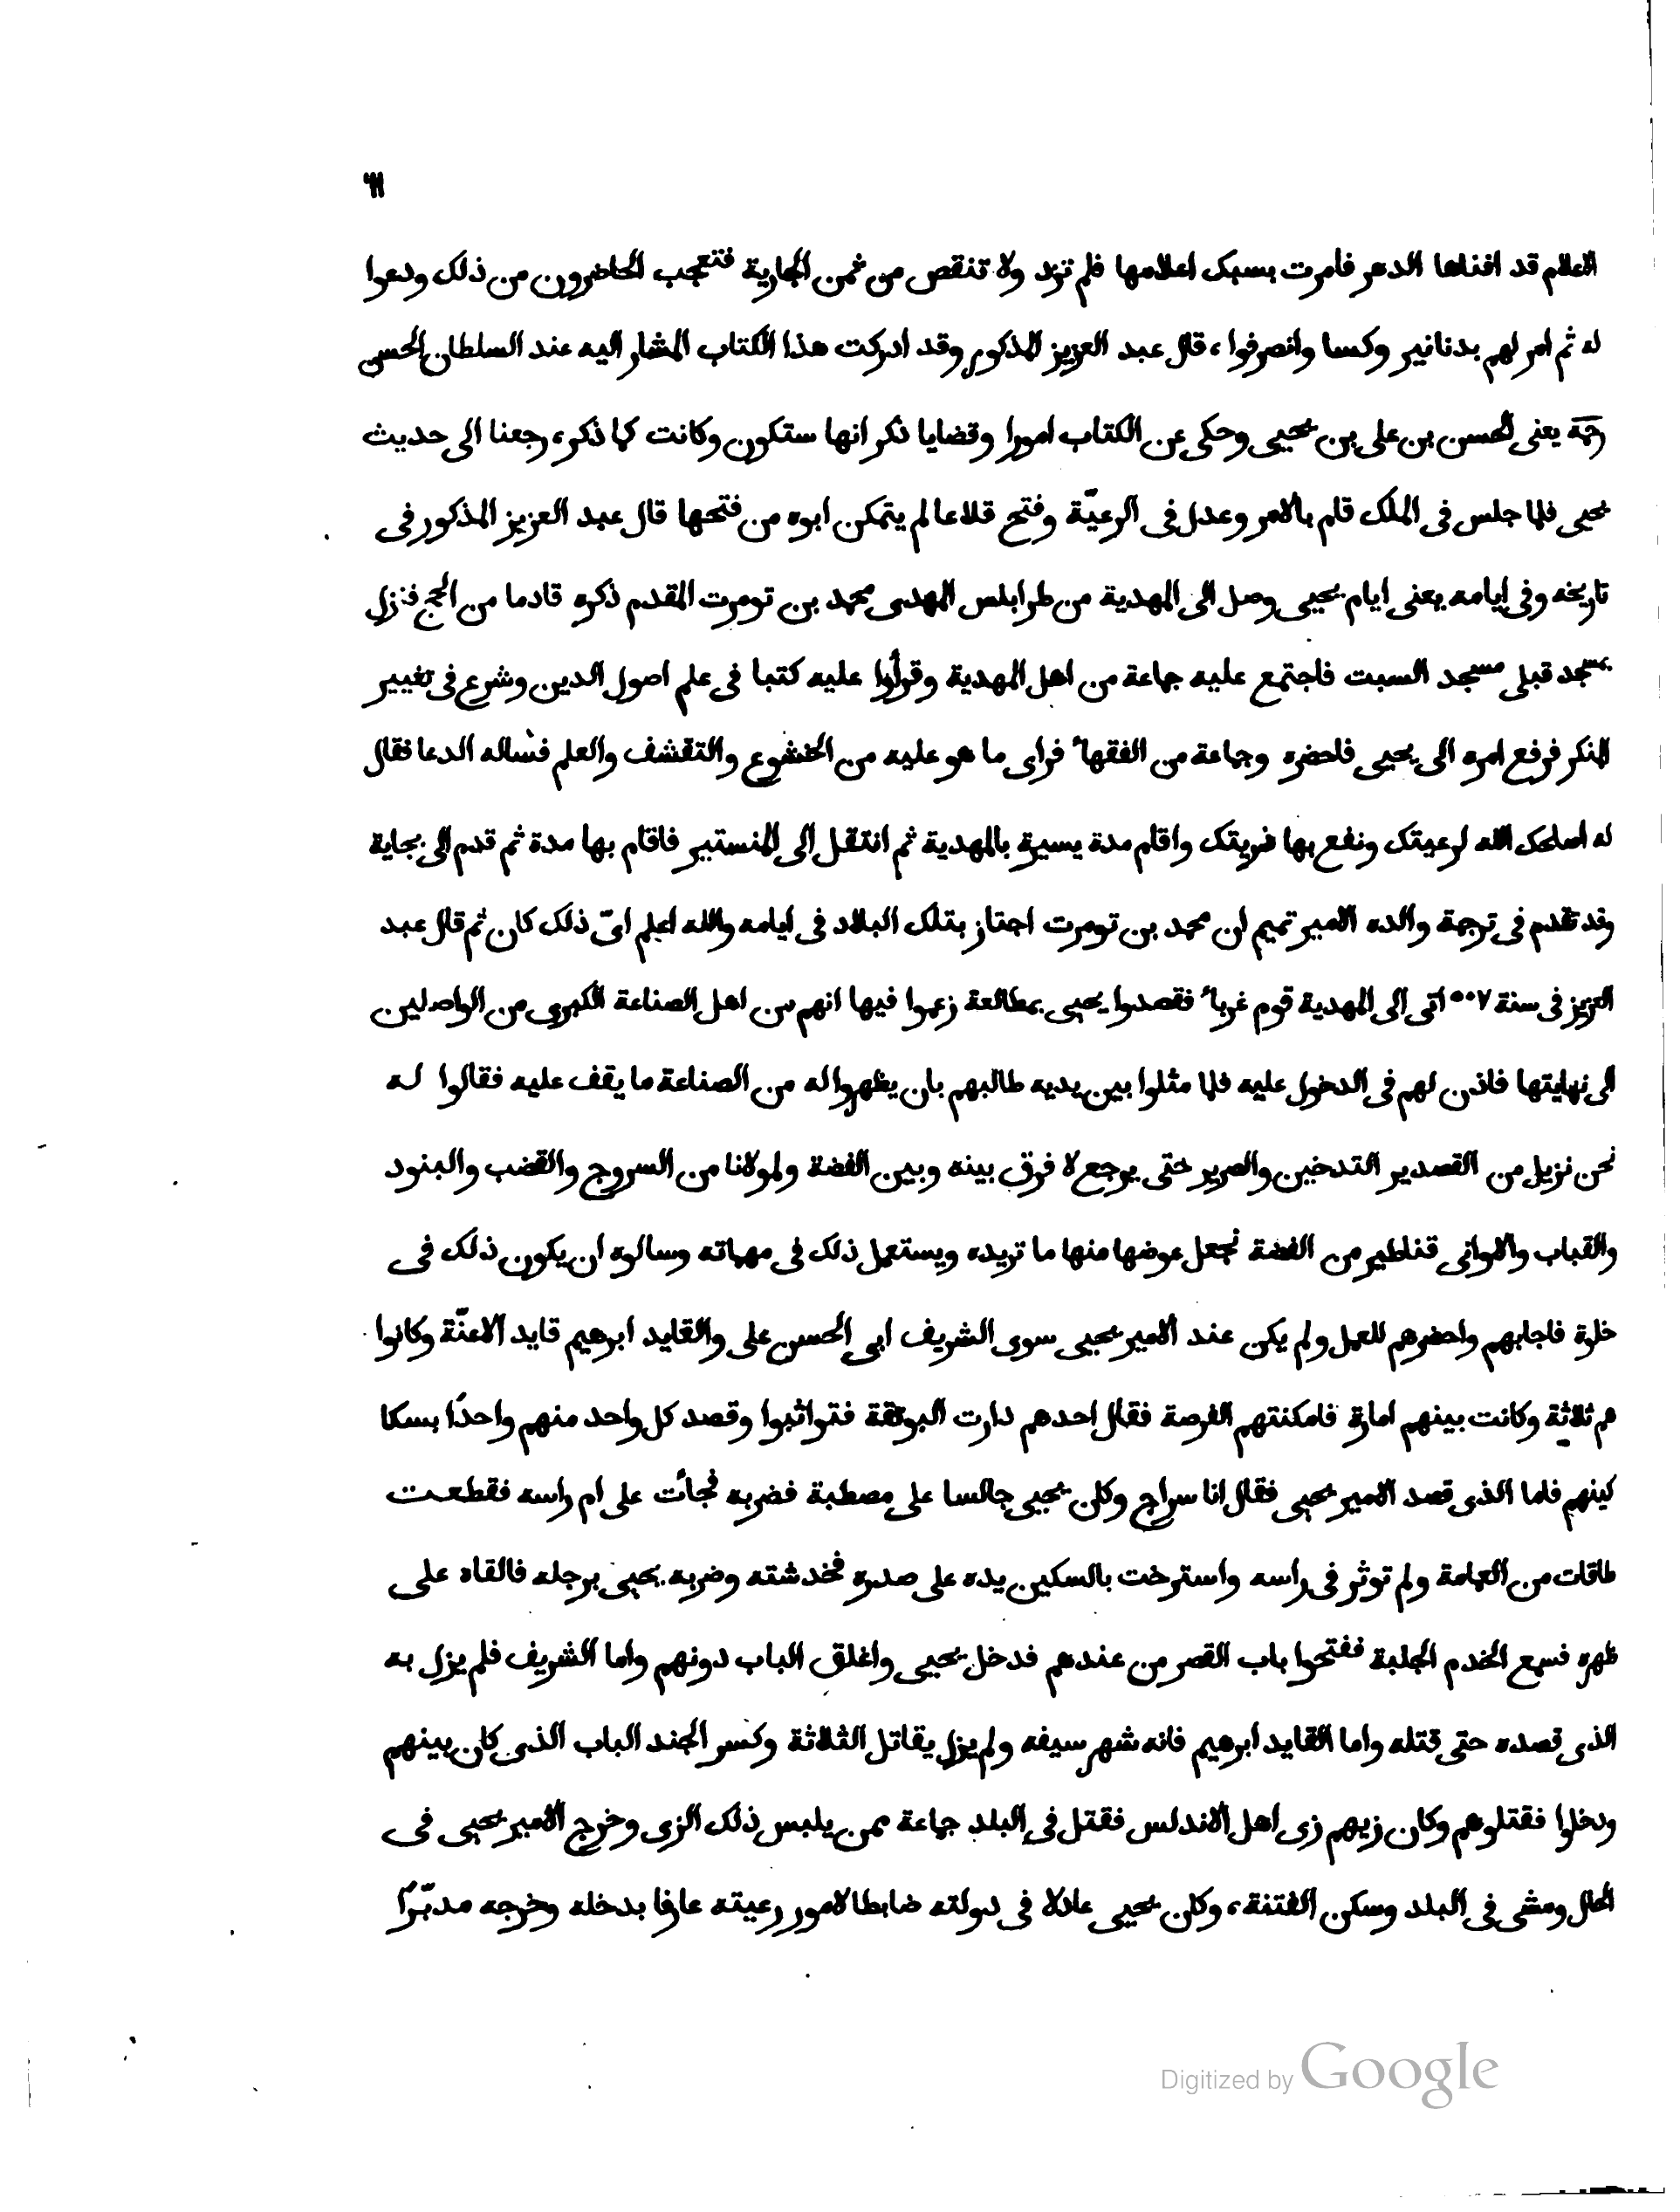 ٩٩
الاعلام قد افناها الدهر فامرت بسبك اعلامها فلم تزد ولا تنقص من ثمن الجارية فتعجب الحاضرون من ذلك ودعوا
له ثم امر لهم بدنانير وكسا وانصرفوا، قال عبد العزيز المذكور وقد ادركت هذا الكتاب المشار اليه عند السلطان الحسن
رحمة يعنى الحسن بن على بن يحيى وحكى عن الكتاب امورا وقضايا ذكر انها ستكون وكانت كما ذكر، رجعنا الى حديث
يحيى فلما جلس فى الملك قام بالامر وعدل فى الرعيّة وفتح قلاعا لم يتمكن ابوه من فتحها قال عبد العزيز المذكور فى
تاريخه وفى ايامه يعنى ايام يحيى وصل الى المهدية من طرابلس المهدى محمد بن تومرت المقدم ذكره قادما من الحج فنزل
بمسجد قبلى مسجد السبت فاجتمع عليه جماعة من اهل المهدية وقرأوا عليه كتبا فى علم اصول الدين وشرع فى تغيير
المنكر فرفع امره الى يحيى فاحضره وجماعة من الفقهاء فراى ما هو عليه من الخشوع والتقشف والعلم فساله الدعا فقال
له اصلحك الله لرعيتك ونفع بها ذريتك واقام مدة يسيرة بالمهدية ثم انتقل الى المنستير فاقام بها مدة ثم قدم الى بجاية
وقد تقدم فى ترجمة والده الامير تميم ان محمد بن تومرت اجتاز بتلك البلاد فى ايامه والله اعلم اىّ ذلك كان ثم قال عبد
العزيز فى سنة ٥٠٧ اتى الى المهدية قوم غرباء فقصدوا يحيى بمطالعة زعموا فيها انهم من اهل الصناعة الكبرى من الواصلين
الى نهايتها فاذن لهم فى الدخول عليه فلما مثلوا بين يديه طالبهم بان يظهروا له من الصناعة ما يقف عليه فقالوا له
نحن نزيل من القصدير التدخين والصرير حتى يرجع لا فرق بينه وبين الفضة ولمولانا من السروج والقضب والبنود
والقباب والاوانى قناطير من الفضة نجعل عوضها منها ما تريده ويستعمل ذلك فى مهماته وسالوه ان يكون ذلك فى
خلوة فاجابهم واحضرهم للعمل ولم يكن عند الامير يحيى سوى الشريف ابى الحسن على والقايد ابرهيم قايد الاعنّة وكانوا
هم ثلاثة وكانت بينهم امارة فامكنتهم الفرصة فقال احدهم دارت البوتقة فتواثبوا وقصد كل واحد منهم واحدًا بسكا
كينهم فاما الذى قصد الامير يحيى فقال انا سراج وكان يحيى جالسا على مصطبة فضربه فجأت على ام راسه فقطعت
طاقات من العمامة ولم توثر فى راسه واسترخت بالسكين يده على صدره فخدشته وضربه يحيى برجله فالقاه على
ظهره فسمع الخدم الجلبة ففتحوا باب القصر من عندهم فدخل يحيى واغلق الباب دونهم واما الشريف فلم يزل به
الذى قصده حتى قتله واما القايد ابرهيم فانه شهر سيفه ولم يزل يقاتل الثلاثة وكسر الجند الباب الذى كان بينهم
ودخلوا فقتلوهم وكان زيهم زى اهل الاندلس فقتل فى البلد جماعة ممن يلبس ذلك الزى وخرج الامير يحيى فى
الحال ومشى فى البلد وسكن الفتنة، وكان يحيى عادلا فى دولته ضابطا لامور رعيته عارفا بدخله وخرجه مدبّرًا
Digitized by Google